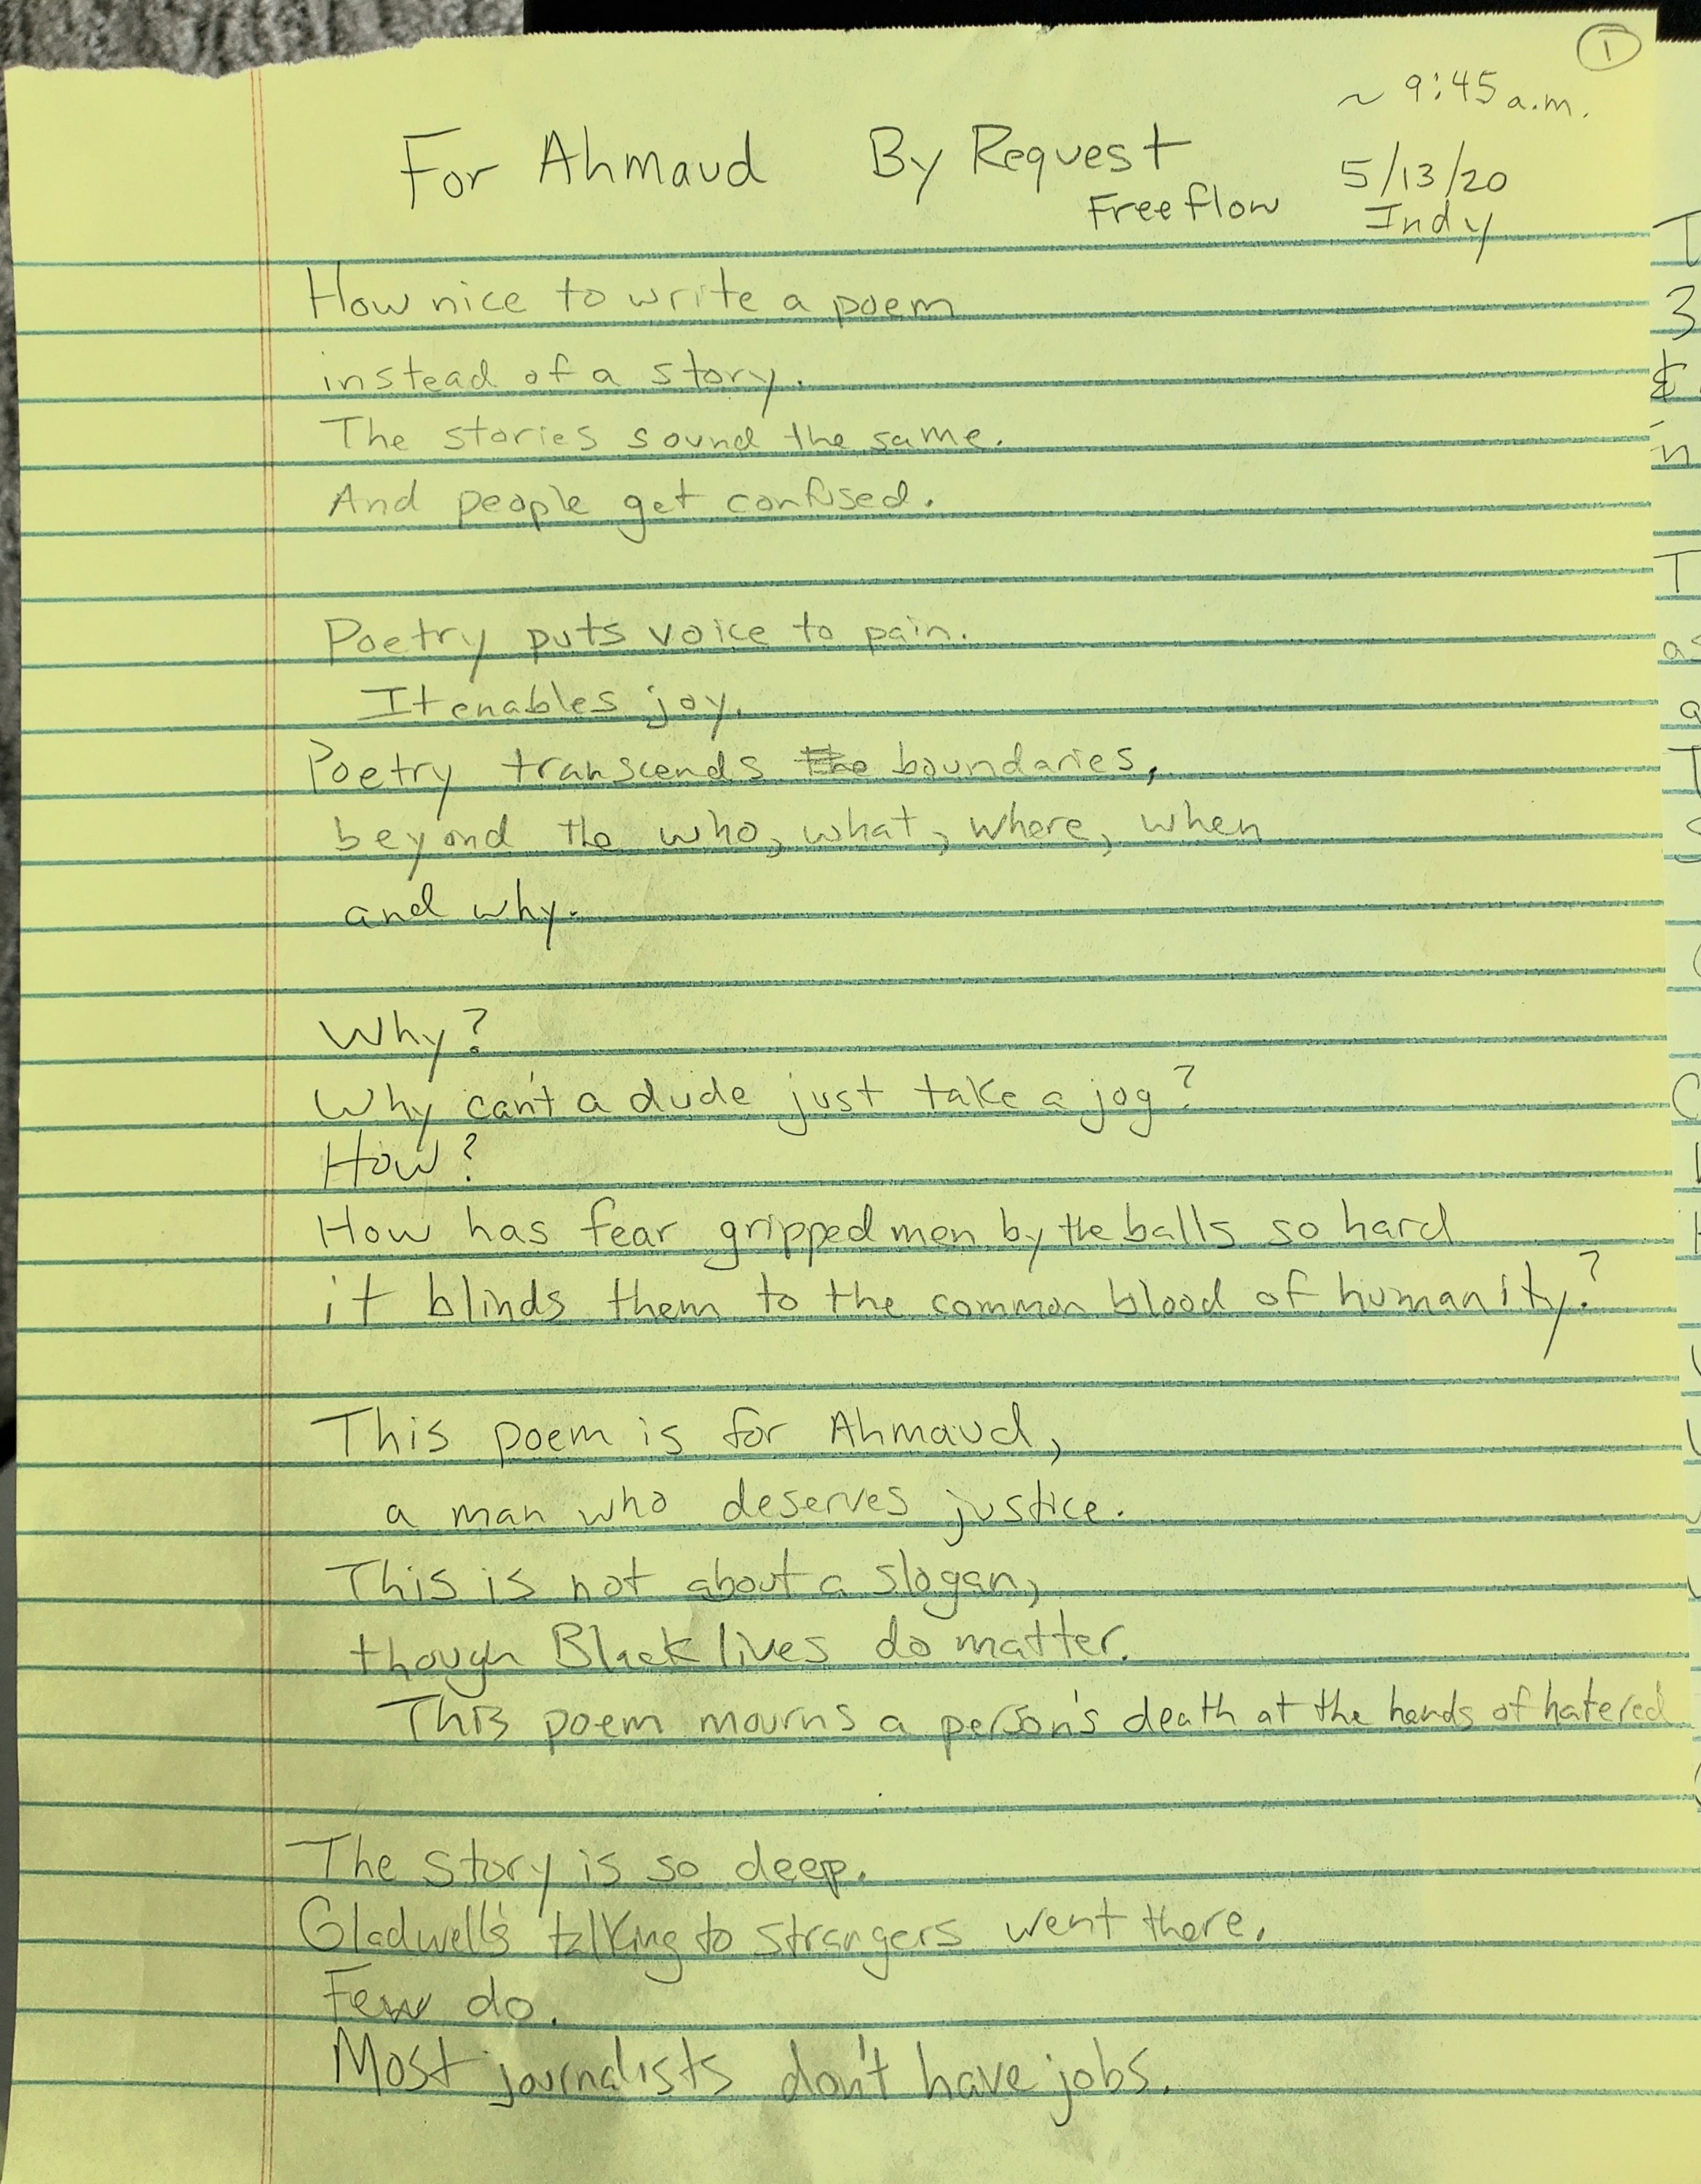 1
~ 9:45 a.m.
For Ahmaud By Request 5/13/20
Freeflow Indy
How nice to write a poem
instead of a story.
The stories sound the same.
And people get confused.
Poetry puts voice to pain.
It enables joy.
Poetry transcends the boundaries,
beyond the who, what, where, when
and why.
Why?
Why can't a dude just take a jog?
How?
How has fear gripped men by the balls so hard
it blinds them to the common blood of humanity?
This poem is for Ahmaud,
a man who deserves justice.
This is not about a slogan,
though Black lives do matter.
This poem mourns a person's death at the hands of hatered
The story is so deep.
Gladwell's talking to strangers went there.
Few do.
Most journalists don't have jobs.